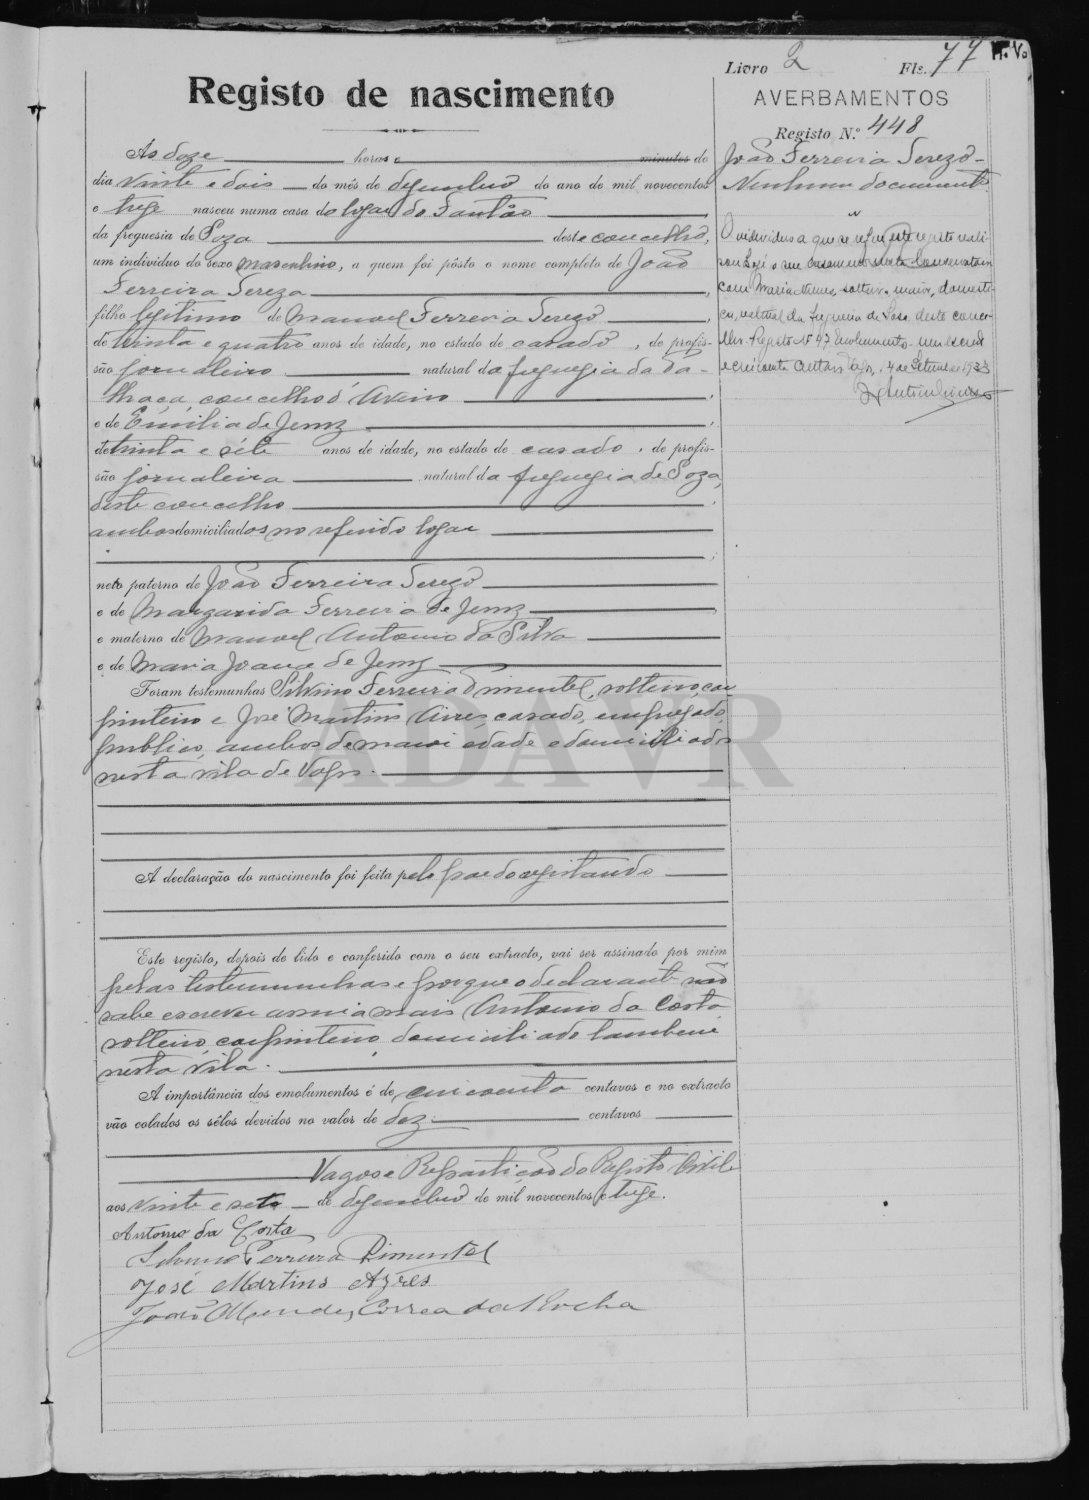 Livro 2 Fls. 77
Registo de nascimento
AVERBAMENTOS
Registo N.º 448
João Ferreira Serezo
Nenhum documento
As doze horas e minutos do
dia vinte e dois do mês de dezembro do ano de mil novecentos
e treze nasceu numa casa do logar do Fantão
da freguesia de Soza deste concelho,
um individuo do sexo masculino, a quem foi pôsto o nome completo de João
Ferreira Sereza
filho legitimo de Manoel Ferreira Serezo,
de trinta e quatro anos de idade, no estado de casado, de profis-
são jornaleiro natural da freguezia da Pa-
lhaça, concelho d'Aveiro,
e de Emilia de Jesus,
de trinta e séte anos de idade, no estado de casado, de profis-
são jornaleira natural da freguezia de Soza,
deste concelho
ambos domiciliados no referido logar
neto paterno de João Ferreira Serezo
e de Margarida Ferreira de Jesus,
e materno de Manoel Antonio da Silva
e de Maria Joana de Jesus
Foram testemunhas Silvino Ferreira Pimentel, solteiro, car
pinteiro e José Martins Aires, casado, empregado
publico, ambos de maior edade e domiciliados
nesta vila de Vagos.
A declaração do nascimento foi feita pelo pae do registando
Este registo, depois de lido e conferido com o seu extracto, vai ser assinado por mim
pelas testemunhas e porque o declarante não
sabe escrever assina mais Antonio da Costa
solteiro, carpinteiro, domiciliado tambem
nesta vila.
A importância dos emolumentos é de cincoenta centavos e no extracto
vão colados os sêlos devidos no valor de dez centavos
Vagos e Repartição do Registo Civil
aos vinte e sete de dezembro de mil novecentos e treze.
Antonio da Costa
Silvino Ferreira Pimentel
José Martins Ayres
João Mendes Correa da Rocha
O individuo a que se refere este registo reali-
sou hoje o seu casamento nesta Conservatoria
com Maria Nunes, solteira, maior, domesti-
ca, natural da freguesia de Sosa, deste conce-
lho. Registo Nº 47. Emolumento um escudo
e cincoenta centavos. Vagos, 4 de Setembro 1933
ADAVR